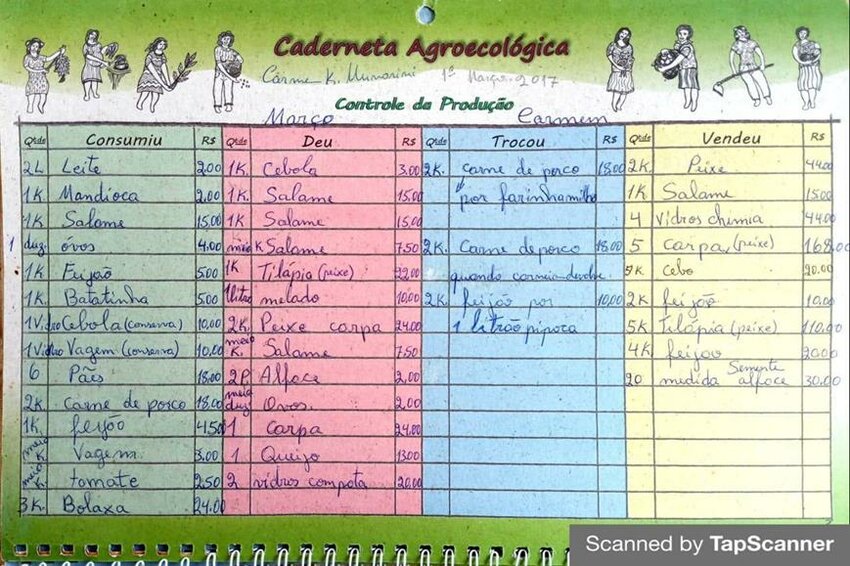 Caderneta Agroecológica
Cárme K. Munarini 1º Março. 2017
Controle da Produção
Março Carmem
Qtds Consumiu R$ Qtds Deu R$ Qtds Trocou R$ Qtds Vendeu R$
2L Leite 2,00 1K. Cebola 3,00 2K. carne de porco 18,00 2K. Peixe 44,00
1K Mandioca 2,00 1K. Salame 15,00 por farinha milho 1K Salame 15,00
1K Salame 15,00 1K Salame 15,00 4 Vidros chimia 44,00
1 duz. óvos 4,00 meio K Salame 7,50 2K. Carne de porco 18,00 5 carpa, (peixe) 168,00
1K Feijão 5,00 1K Tilápia (peixe) 22,00 quando carneia devolve 5K Cebo 20,00
1K. Batatinha 5,00 1 litro melado 10,00 2K feijão por 10,00 2K feijão 10,00
1 Vidro Cebola (conserva) 10,00 2K. Peixe carpa 24,00 1 litrão pipoca 5K Tilápia (peixe) 110,00
1 Vidro Vagem (conserva) 10,00 meio K. Salame 7,50 4K feijão 20,00
6 Pães 18,00 2P Alface 2,00 20 medida Semente alface 30,00
2K carne de porco 18,00 meia duz. Ovos. 2,00
1K. feijão 4,50 1 Carpa 24,00
meio K. Vagem 3,00 1 Queijo 13,00
meio K. tomate 2,50 2 vidros compota 20,00
3K Bolaxa 24,00
Scanned by TapScanner